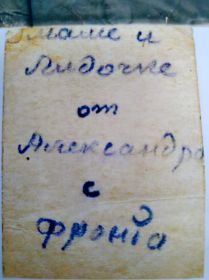 маше и
Лидочке
от
Александра
с
фронта